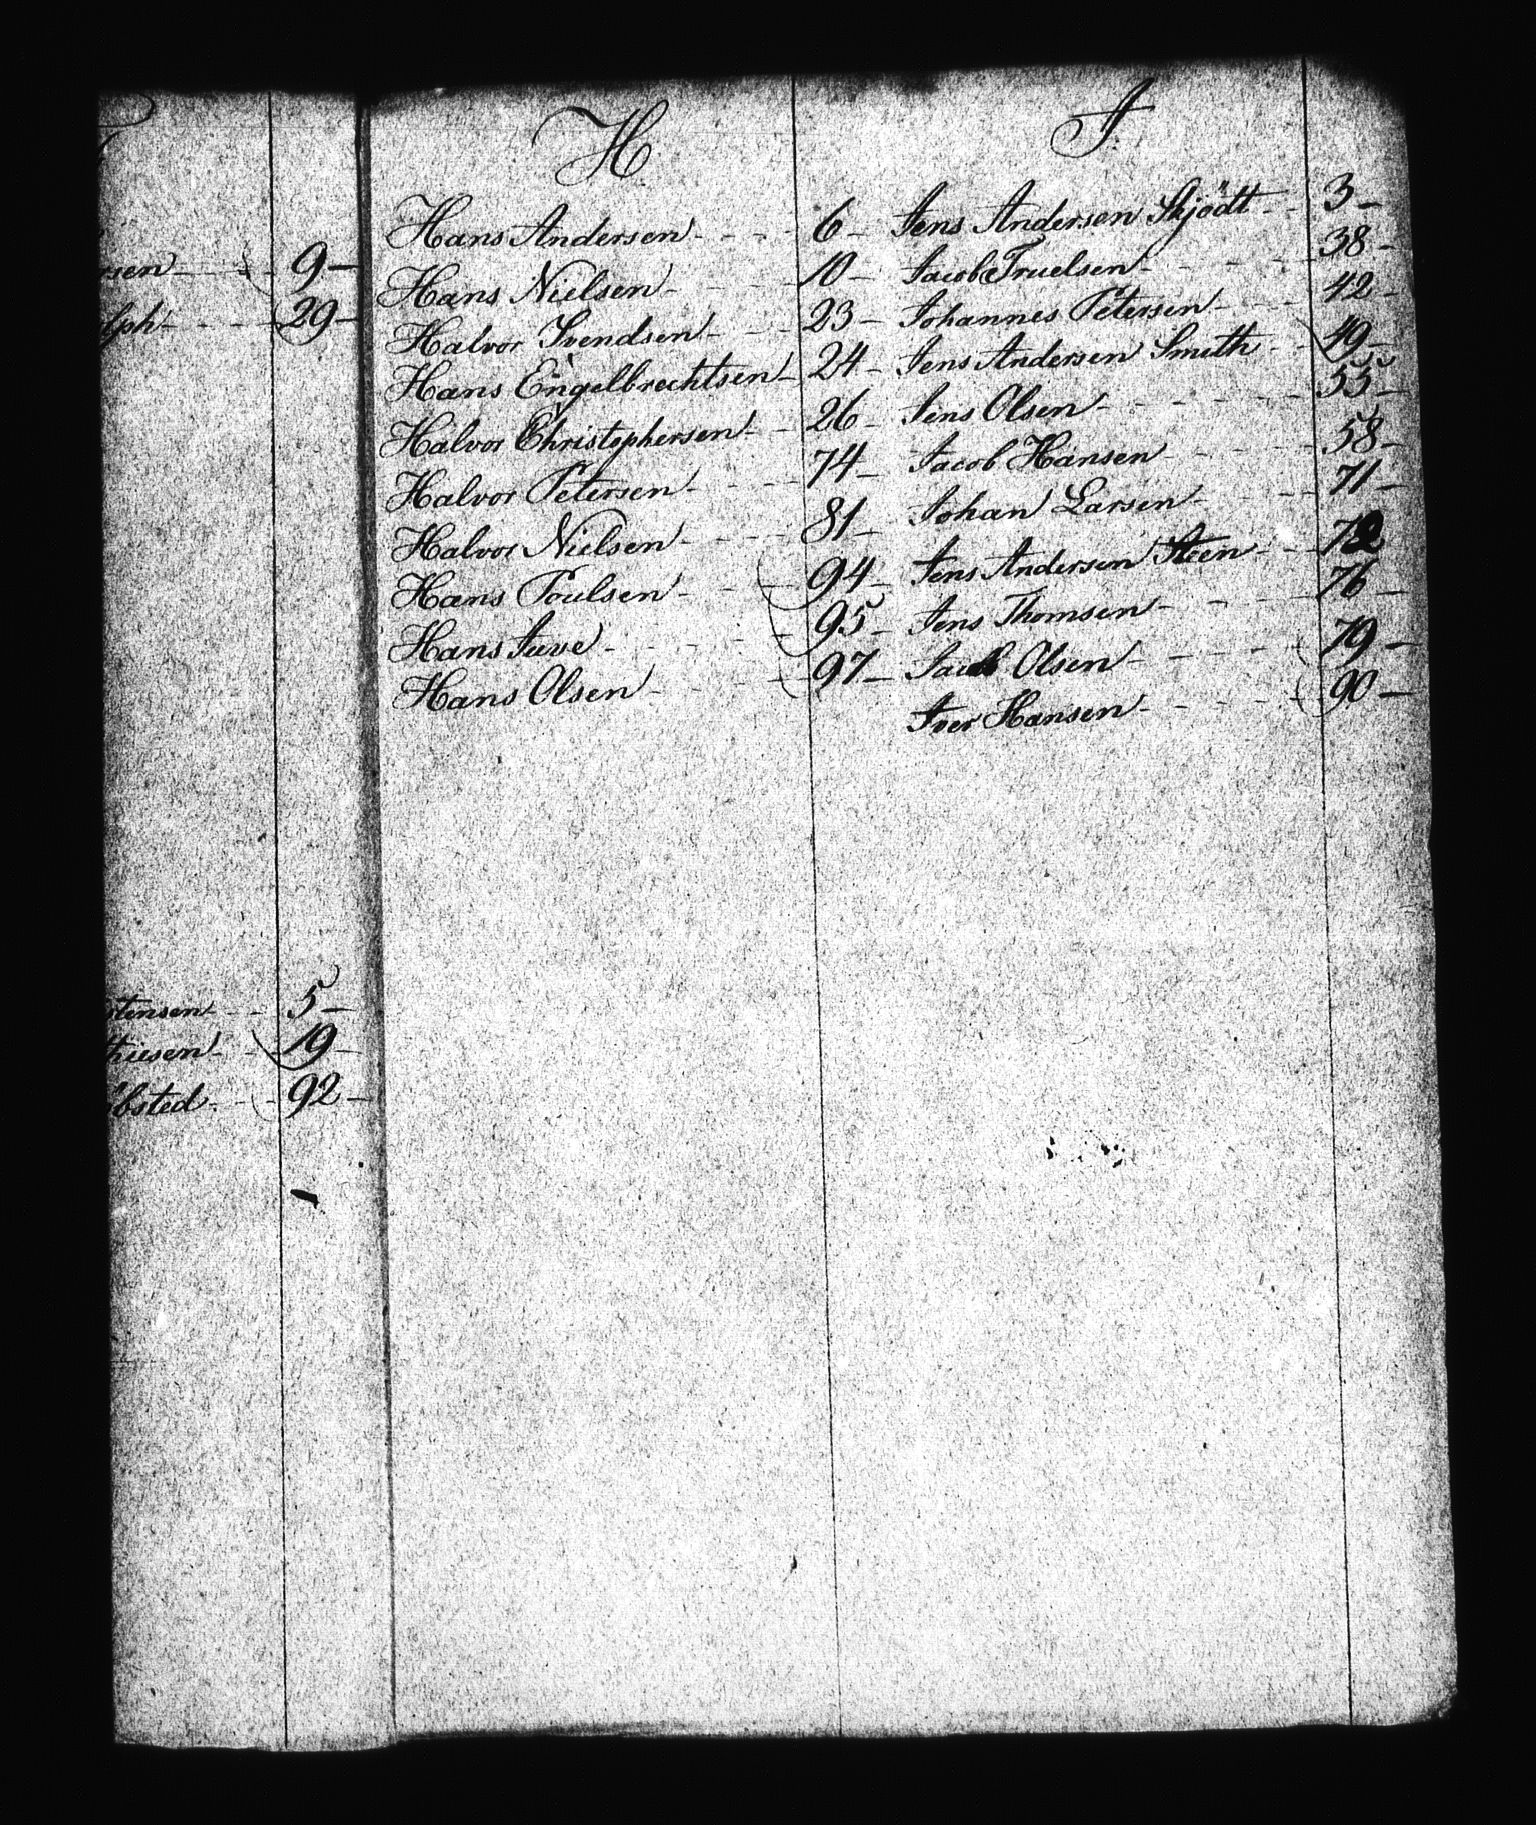 rsen 9
lph 29
stensen 5
thiesen 19
bsted 92
H
Hans Andersen 6
Hans Nielsen 10
Halvor Svendsen 23
Hans Engelbrechtsen 24
Halvor Christophersen 26
Halvor Petersen 74
Halvor Nielsen 81
Hans Poulsen 94
Hans Juve 95
Hans Olsen 97
J.
Jens Andersen Skjödt 3
Jacob Truelsen 38
Johannes Petersen 42
Jens Andersen Smith 49
Jens Olsen 55
Jacob Hansen 58
Johan Larsen 71
Jens Andersen Steen 72
Jens Thomsen 76
Jacob Olsen 79
Iver Hansen 90